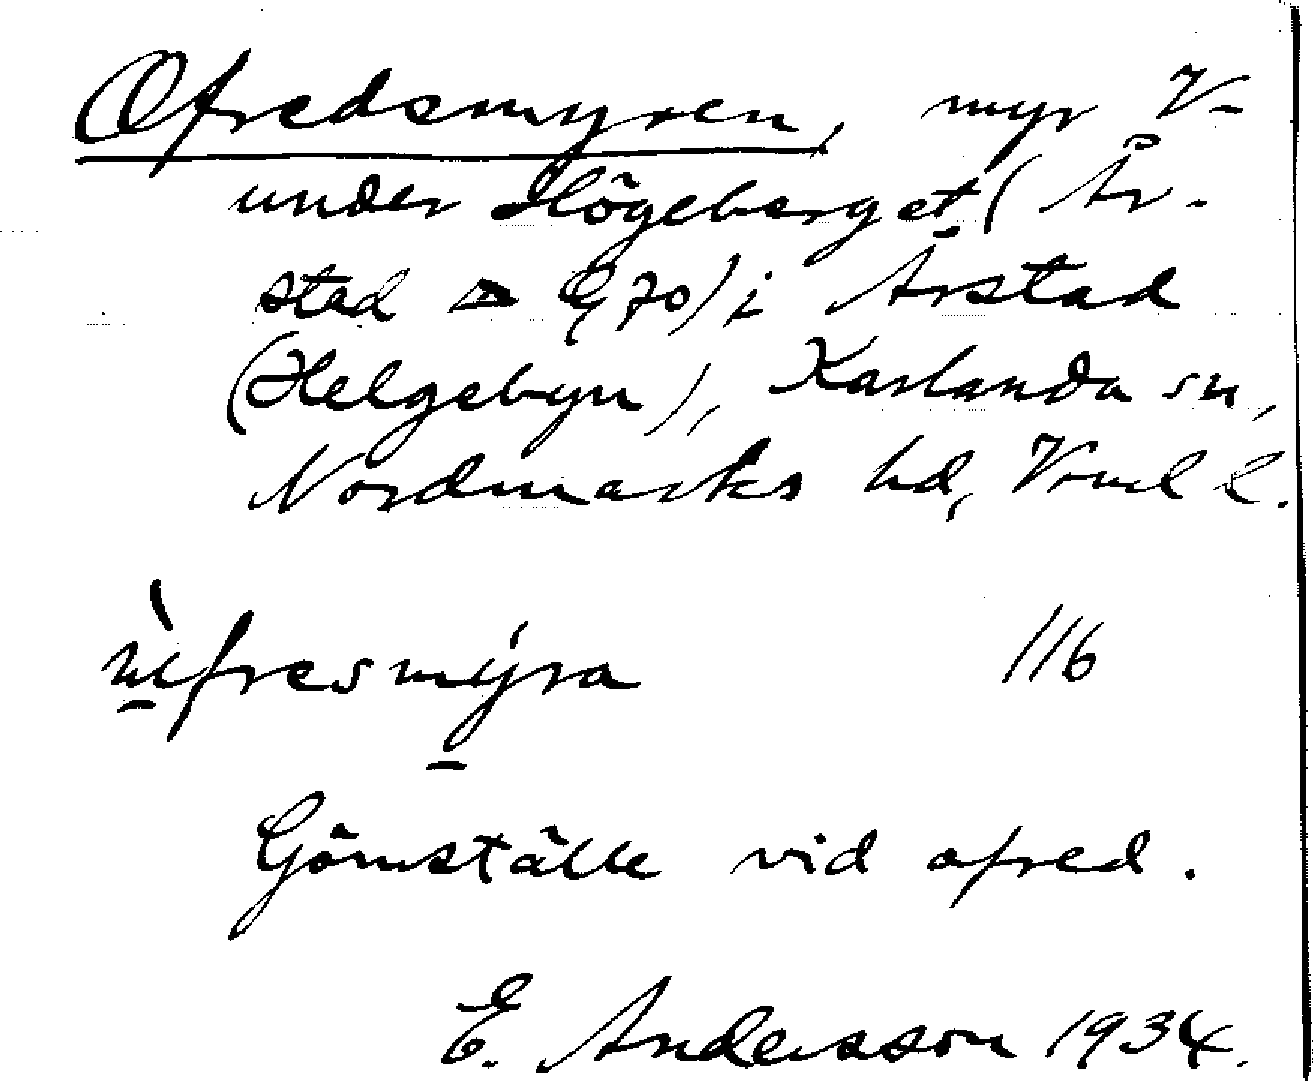 Ofredsmyren, myr V-
under Högeberget (År-
stad 970) i Årstad
(Helgebyn), Karlanda sn,
Nordmarks hd, Vrml l.
ùfresmýra 116
Gömställe vid ofred.
E. Andersson 1934.